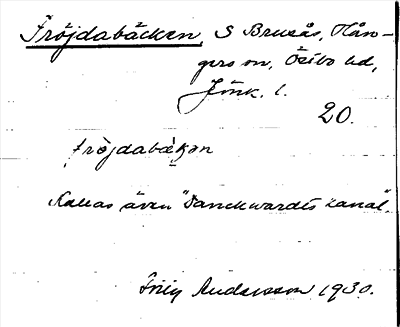 Fröjdabäcken, S Brusås, Hån-
gers sn, Östbo hd,
Jönk. l.
20.
fröjdabäkən
Kallas även "Danckwardts kanal".
Frily Andersson 1930.